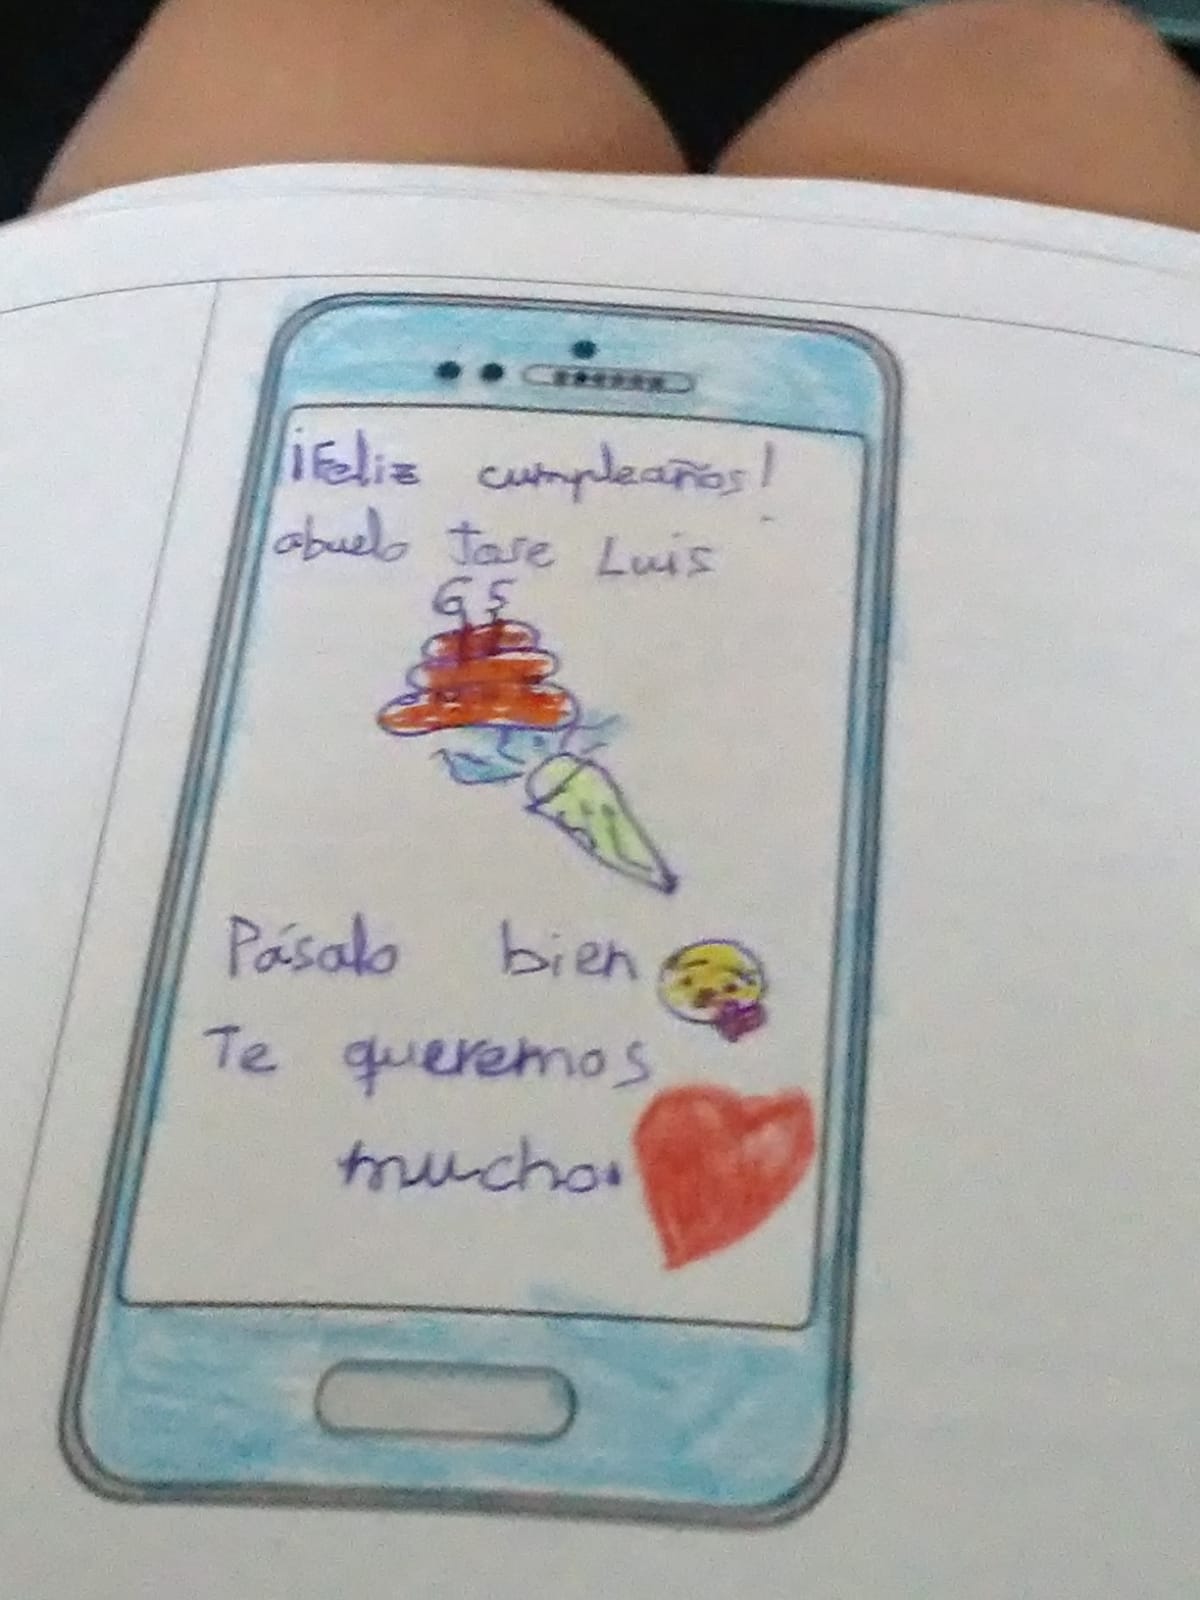 ¡Feliz cumpleaños!
abuelo Jose Luis
65
Pásalo bien
Te queremos
mucho.